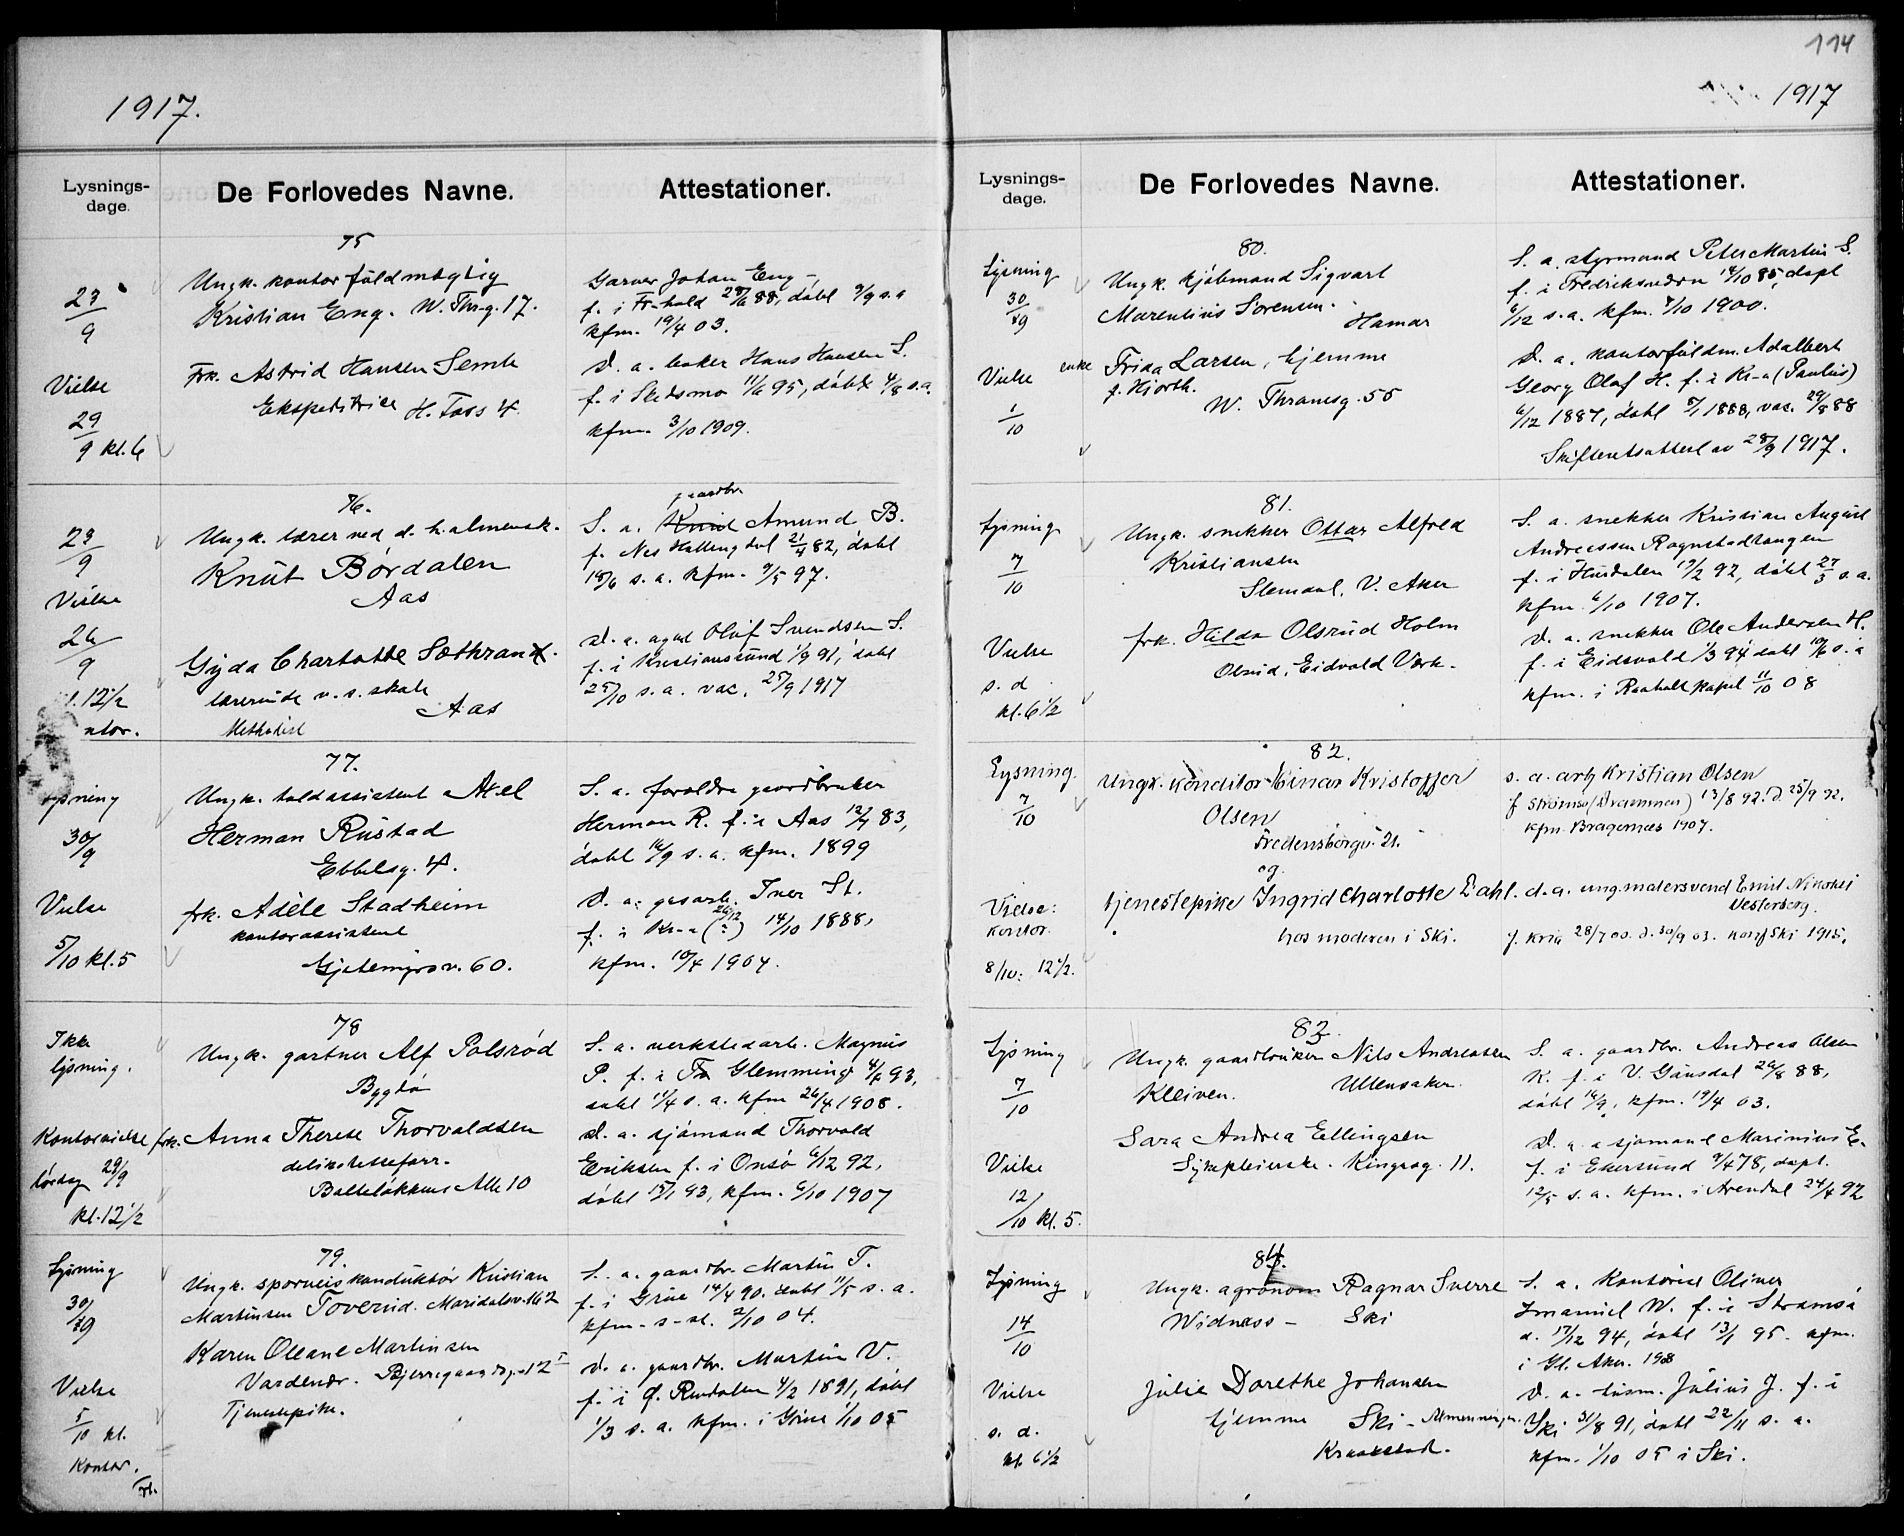 114
1917.
1917
Lysnings-
dage.
De Forlovedes Navne.
Attestationer.
75
23/9
Vielse
29/9 kl. 6
Ungk. kontorfuldmægtig
Kristian Eng. W. Thr.g. 17.
Frk. Astrid Hansen Semb
Ekspeditrice H. Foss 4.
Garver Johan Eng -
f. i Fr-hald 28/6 88, døbt 9/9 s. a
kfm. 19/4 03.
D. a. baker Hans Hansen S.
f. i Skedsmo 11/6 95, døbt 4/8 s. a.
kfm. 3/10 1909.
76.
23/9
Vielse
26/9
kl. 12 1/2
Ungk. lærer ved d. h. almensk.
Knut Børdalen
Aas
Gyda Charlotte Sæthrand.
lærerinde v. s. skole
Aas
Methodist
gaardbr.
S. a. Amund B.
f. Nes Hallingdal 21/4 82, døbt
18/6 s. a. kfm. 9/5 97.
D. a. agent Oluf Svendsen S.
f. i Kristianssund 1/9 91, døbt
25/10 s. a. vac. 25/9 1917
77.
Lysning
30/9
Vielse
5/10 kl. 5
Ungk. toldassistent Axel
Herman Rustad
Ebbelsg. 4.
frk. Adèle Stadheim
kontorassistent
Gjetemyrsv. 60.
S. a. forældre gaardbruker
Herman R. f. i Aas 12/7 83,
døbt 16/9 s. a. kfm. 1899
D. a. gasarb. Iver St.
f. i Kr-a (26/12 ?) 14/10 1888,
kfm. 10/4 1904.
78
Ikke
lysning.
Kontorvielse
lørdag 29/9
kl. 12 1/2
Ungk. gartner Alf Polsrød
Bygdø
frk. Anna Therese Thorvaldsen
delikatesseforr.
Balteløkkens Alle 10
S. a. verkstedarb. Magnus
P. f. i Glemminge 4/2 93,
døbt 1/4 s. a. kfm 26/4 1908.
D. a. sjømand Thorvald
Eriksen f. i Onsø 6/12 92,
døbt 15/1 93, kfm. 6/10 1907
79.
Lysning
30/9
Vielse
5/10 kl.
Kontor.
Ungk. sporveiskonduktør Kristian
Martinsen Toverud. Maridalsv. 162
Karen Oleane Martinsen
Vardenær. Bjerregaardsg. 12 I
Tjenestepike.
S. a. gaardbr. Martin T.
f. i Grue 14/4 90. døbt 11/5 s. a.
kfm. s. st. 2/10 04.
D. a. gaardbr. Martin V.
f. i Ø. Rendalen 4/2 1891, døbt
1/3 s. a. kfm. i Grue 1/10 05
Lysnings-
dage.
De Forlovedes Navne.
Attestationer.
80.
Lysning
30/9
Vielse
1/10
Ungk. kjøbmand Sigvart
Marentius Sørensen.
Hamar
enke Frida Larsen, hjemme
f. Hjorth.
W. Thranesg. 55
S. a. styrmand Peter Martin S.
f. i Fredriksværn 14/10 85, døpt
6/12 s. a. kfm. 7/10 1900.
D. a. kontorfuldm. Adalbert
Georg Olaf H. f. i Kr-a (Paulus)
6/12 1887, døbt 8/1 1888, vac. 29/8 88
Skifteretsattest av 28/9 1917.
81.
Lysning
7/10
Vielse
s. d
kl. 6 1/2
Ungk. snekker Ottar Alfred
Kristiansen
Slemdal, V. Aker
frk. Hilda Olsrud Holm
Olsrud, Eidsvold Verk.
S. a. snekker Kristian August
Andreassen Rognstadtangen
f. i Hurdalen 17/2 92, døbt 27/3 s. a.
kfm. 6/10 1907.
D. a. snekker Ole Andersen H.
f. i Eidsvold 1/3 94 døbt 10/6 s. a
kfm. i Raaholt kapel 11/10 08
82.
Lysning.
7/10
Vielse:
kontor.
8/10: 12 1/2.
Ungk. konditor Einar Kristoffer
Olsen
Fredensborgv. 21.
og
tjenestepike Ingrid Charlotte Dahl.
hos moderen i Ski.
s. a. arb Kristian Olsen
f Strømsø (Drammen) 13/8 92. d. 25/9 92.
kfm. Bragernæs 1907.
d. a. ung. malersvend Emil Nikolai
Vesterberg.
f. Kria 28/7 00. d. 30/9 03. konf Ski 1915.
83.
Lysning
7/10
Vielse
12/10 kl. 5.
Ungk. gaardbruker Nils Andreassen
Kleiven. Ullensaker.
Sara Andrea Ellingsen
Sykepleierske. Kingosg. 11.
S. a. gaardbr. Andreas Olsen
K. f. i V. Gausdal 26/8 88,
døbt 16/9, kfm. 19/4 03.
D. a. a sjømand Marinius E.
f. i Ekersund 9/4 78, døpt.
12/5 s. a. kfm. i Arendal 24/4 92
84.
Lysning
14/10
Vielse
s. d.
kl. 6 1/2
Ungk. agronom Ragnar Sverre
Widnæss - Ski
Julie Dorethe Johansen
hjemme Ski - Almenningen.
Kraakstad.
S. a. Kontorist Oliver
Imanuel W. f. i Strømsø
d. 17/12 94, døbt 13/1 95. kfm.
i Gl. Aker. 1908
D. a. husm. Julius J. f. i
Ski 31/8 91, døbt 22/11 s. a.
kfm. 1/10 05 i Ski.